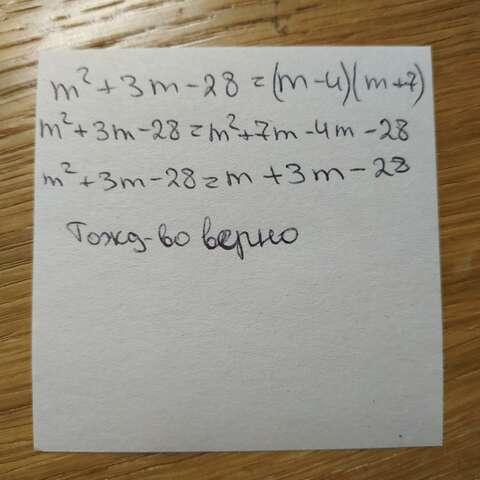 m² + 3m - 28 = (m - 4)(m + 7)
m² + 3m - 28 = m² + 7m - 4m - 28
m² + 3m - 28 = m + 3m - 28
Тожд-во верно